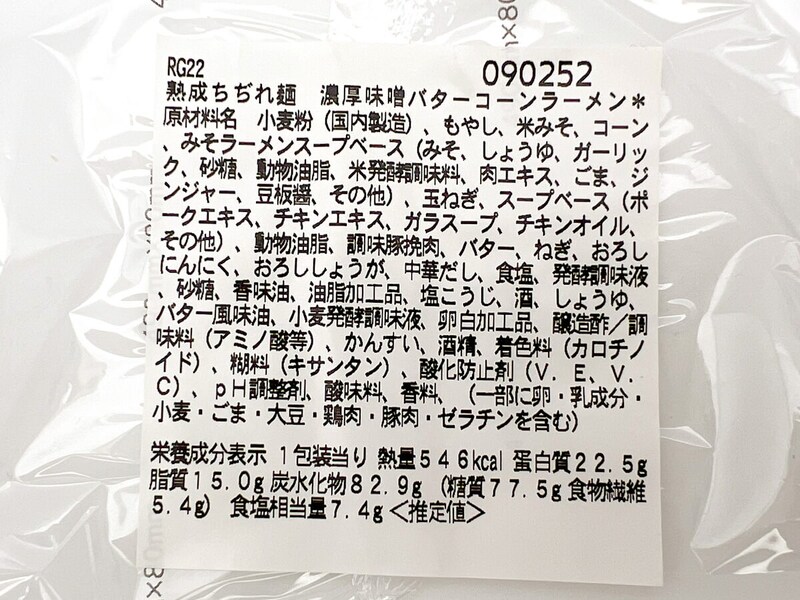 RG22
090252
熟成ちぢれ麺　濃厚味噌バターコーンラーメン＊
原材料名　小麦粉（国内製造）、もやし、米みそ、コーン
、みそラーメンスープベース（みそ、しょうゆ、ガーリッ
ク、砂糖、動物油脂、米発酵調味料、肉エキス、ごま、ジ
ンジャー、豆板醤、その他）、玉ねぎ、スープベース（ポ
ークエキス、チキンエキス、ガラスープ、チキンオイル、
その他）、動物油脂、調味豚挽肉、バター、ねぎ、おろし
にんにく、おろししょうが、中華だし、食塩、発酵調味液
、砂糖、香味油、油脂加工品、塩こうじ、酒、しょうゆ、
バター風味油、小麦発酵調味液、卵白加工品、醸造酢／調
味料（アミノ酸等）、かんすい、酒精、着色料（カロチノ
イド）、糊料（キサンタン）、酸化防止剤（Ｖ．Ｅ、Ｖ．
Ｃ）、ｐＨ調整剤、酸味料、香料、（一部に卵・乳成分・
小麦・ごま・大豆・鶏肉・豚肉・ゼラチンを含む）
栄養成分表示　１包装当り　熱量５４６kcal　蛋白質２２．５g
脂質１５．０g 炭水化物８２．９g （糖質７７．５g 食物繊維
５．４g）　食塩相当量７．４g＜推定値＞